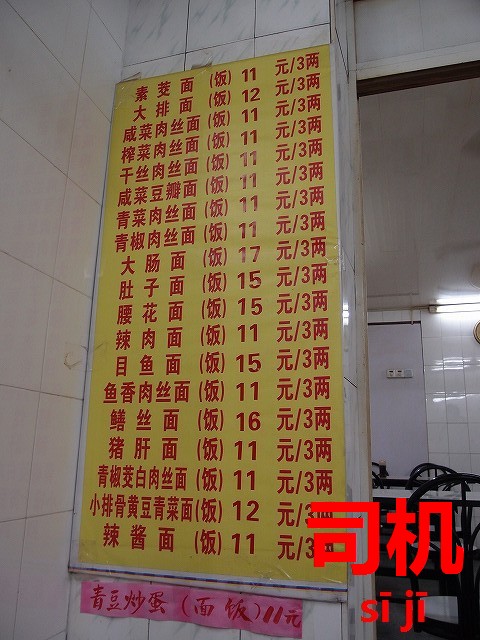 素茭面(饭)11元/3两
大排面(饭)12元/3两
咸菜肉丝面(饭)11元/3两
榨菜肉丝面(饭)11元/3两
干丝肉丝面(饭)11元/3两
咸菜豆瓣面(饭)11元/3两
青菜肉丝面(饭)11元/3两
青椒肉丝面(饭)11元/3两
大肠面(饭)17元/3两
肚子面(饭)15元/3两
腰花面(饭)15元/3两
辣肉面(饭)11元/3两
目鱼面(饭)15元/3两
鱼香肉丝面(饭)11元/3两
鳝丝面(饭)16元/3两
猪肝面(饭)11元/3两
青椒茭白肉丝面(饭)11元/3两
小排骨黄豆青菜面(饭)12元/3两
辣酱面(饭)11元/3
青豆炒蛋(面饭)11元
司机
sī jī